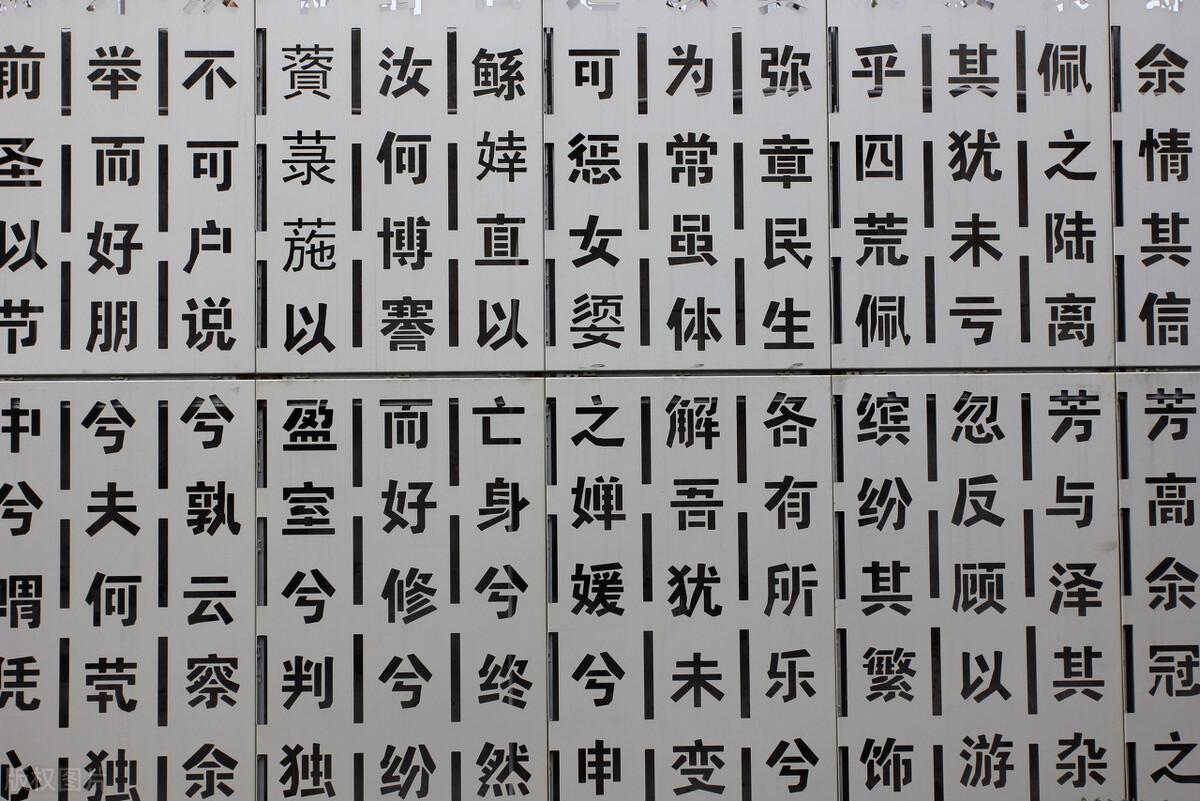 余情其信芳高余冠之
佩之陆离芳与泽其杂
其犹未亏忽反顾以游
乎四荒佩缤纷其繁饰
弥章民生各有所乐兮
为常虽体解吾犹未变
可惩女媭之婵媛兮申
鲧婞直以亡身兮终然
汝何博謇而好修兮纷
薋菉葹以盈室兮判独
不可户说兮孰云察余
举而好朋兮夫何茕独
前圣以节中兮喟凭心
版权图片